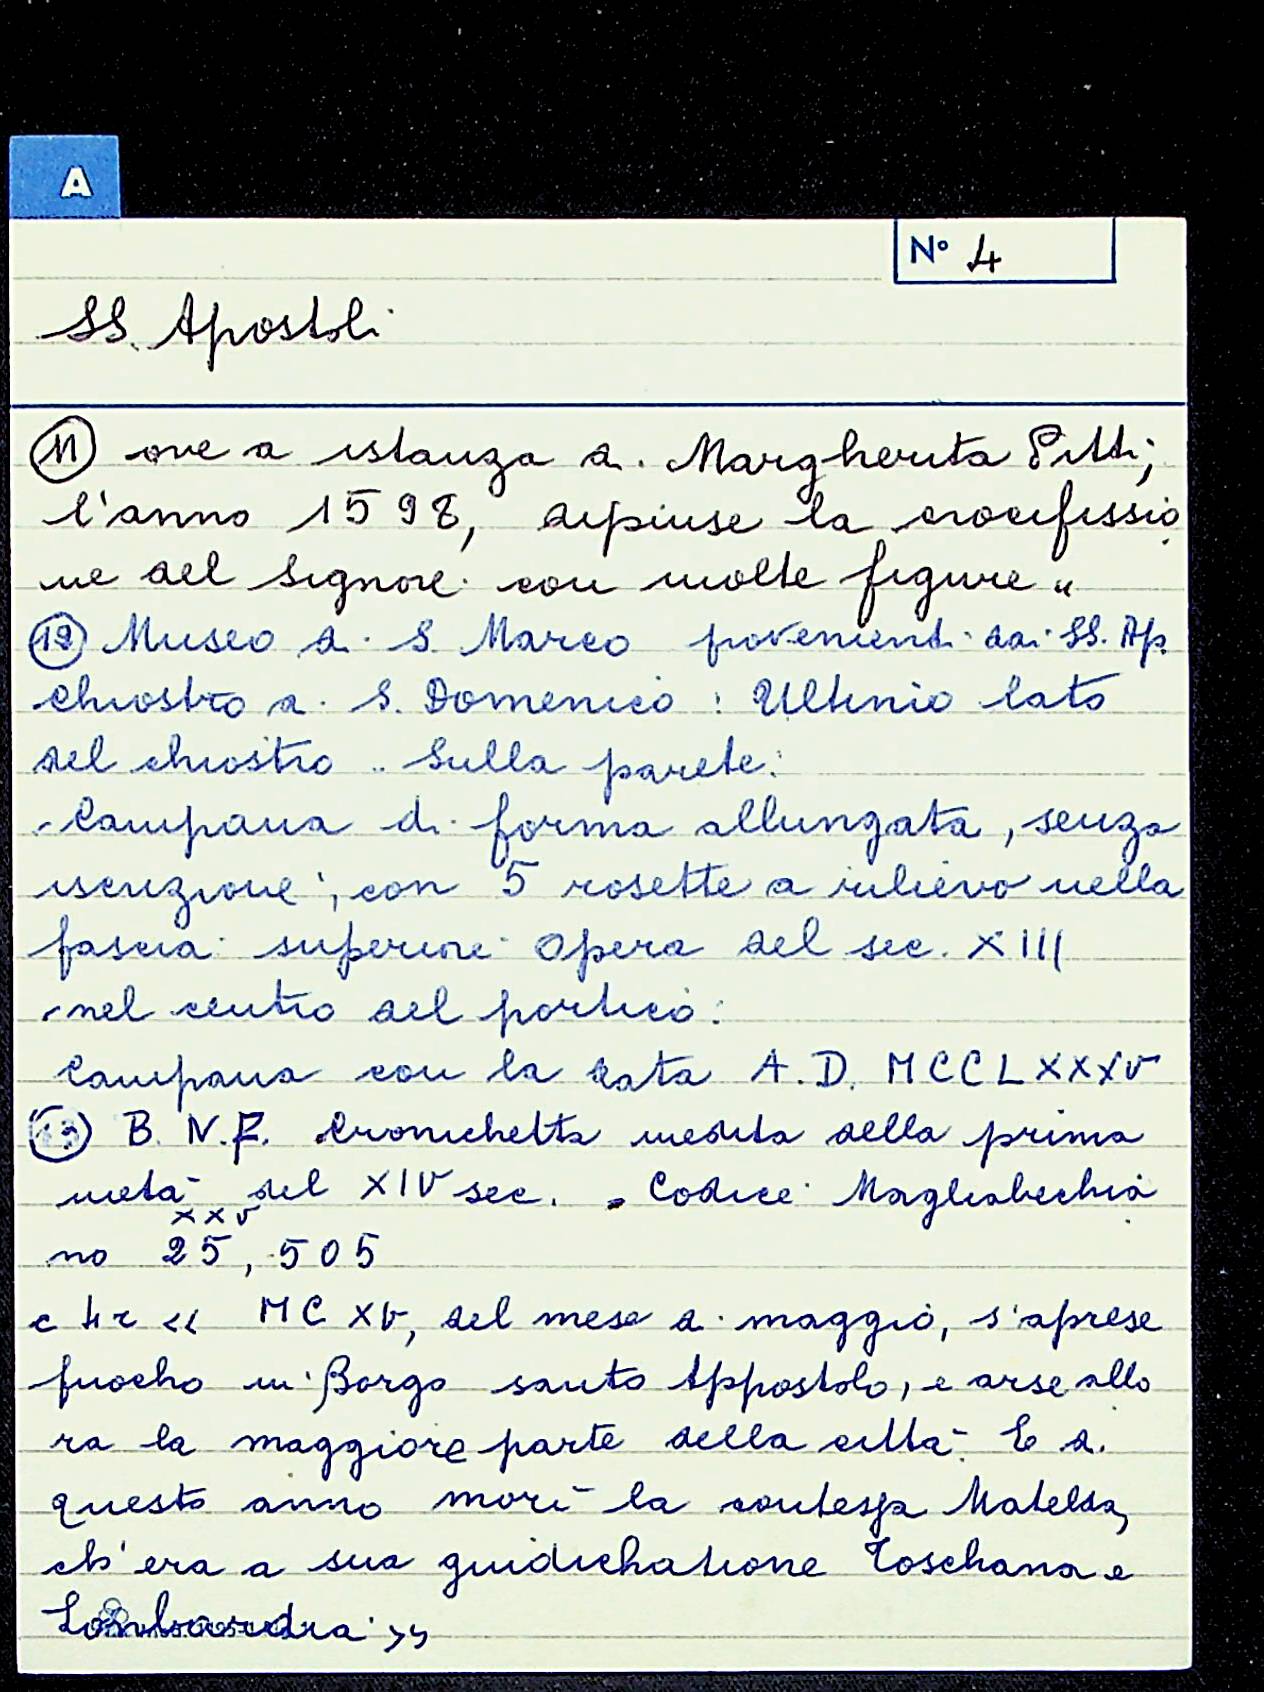 A
N° 4
SS. Apostoli
11 ove a istanza di Margherita Pitti,
l'anno 1598, dipinse la crocifissio
ne del Signore con molte figure "
12 Museo di S. Marco povenienti dai SS. Ap.
Chiostro di S. Domenico : Ultimo lato
del chiostro - Sulla parete:
- Campana di forma allungata, senza
iscrizione, con 5 rosette a rilievo nella
fascia superiore. Opera del sec. XIII
- nel centro del portico:
Campana con la data A.D. MCCLXXXV
13 B. N. F. Cronichetta inedita della prima
metà del XIV sec. - Codice Magliabechia
XXV
no 25, 505
c 4r << MCXV, del mese di maggio, s'aprese
fuocho in Borgo santo Appostolo, e arse allo
ra la maggiore parte della città. E di
questo anno morì la contessa Matelda,
ch'era a sua guidichatione Toschana e
Lombardia >>